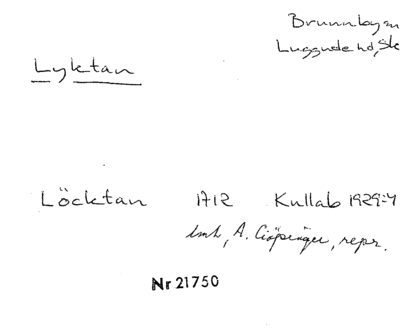 Brunnby sn
Luggude hd, Sk
Lyktan
Löcktan 1712 Kullab 1929:4
lmk, A. repr.
Nr 21750